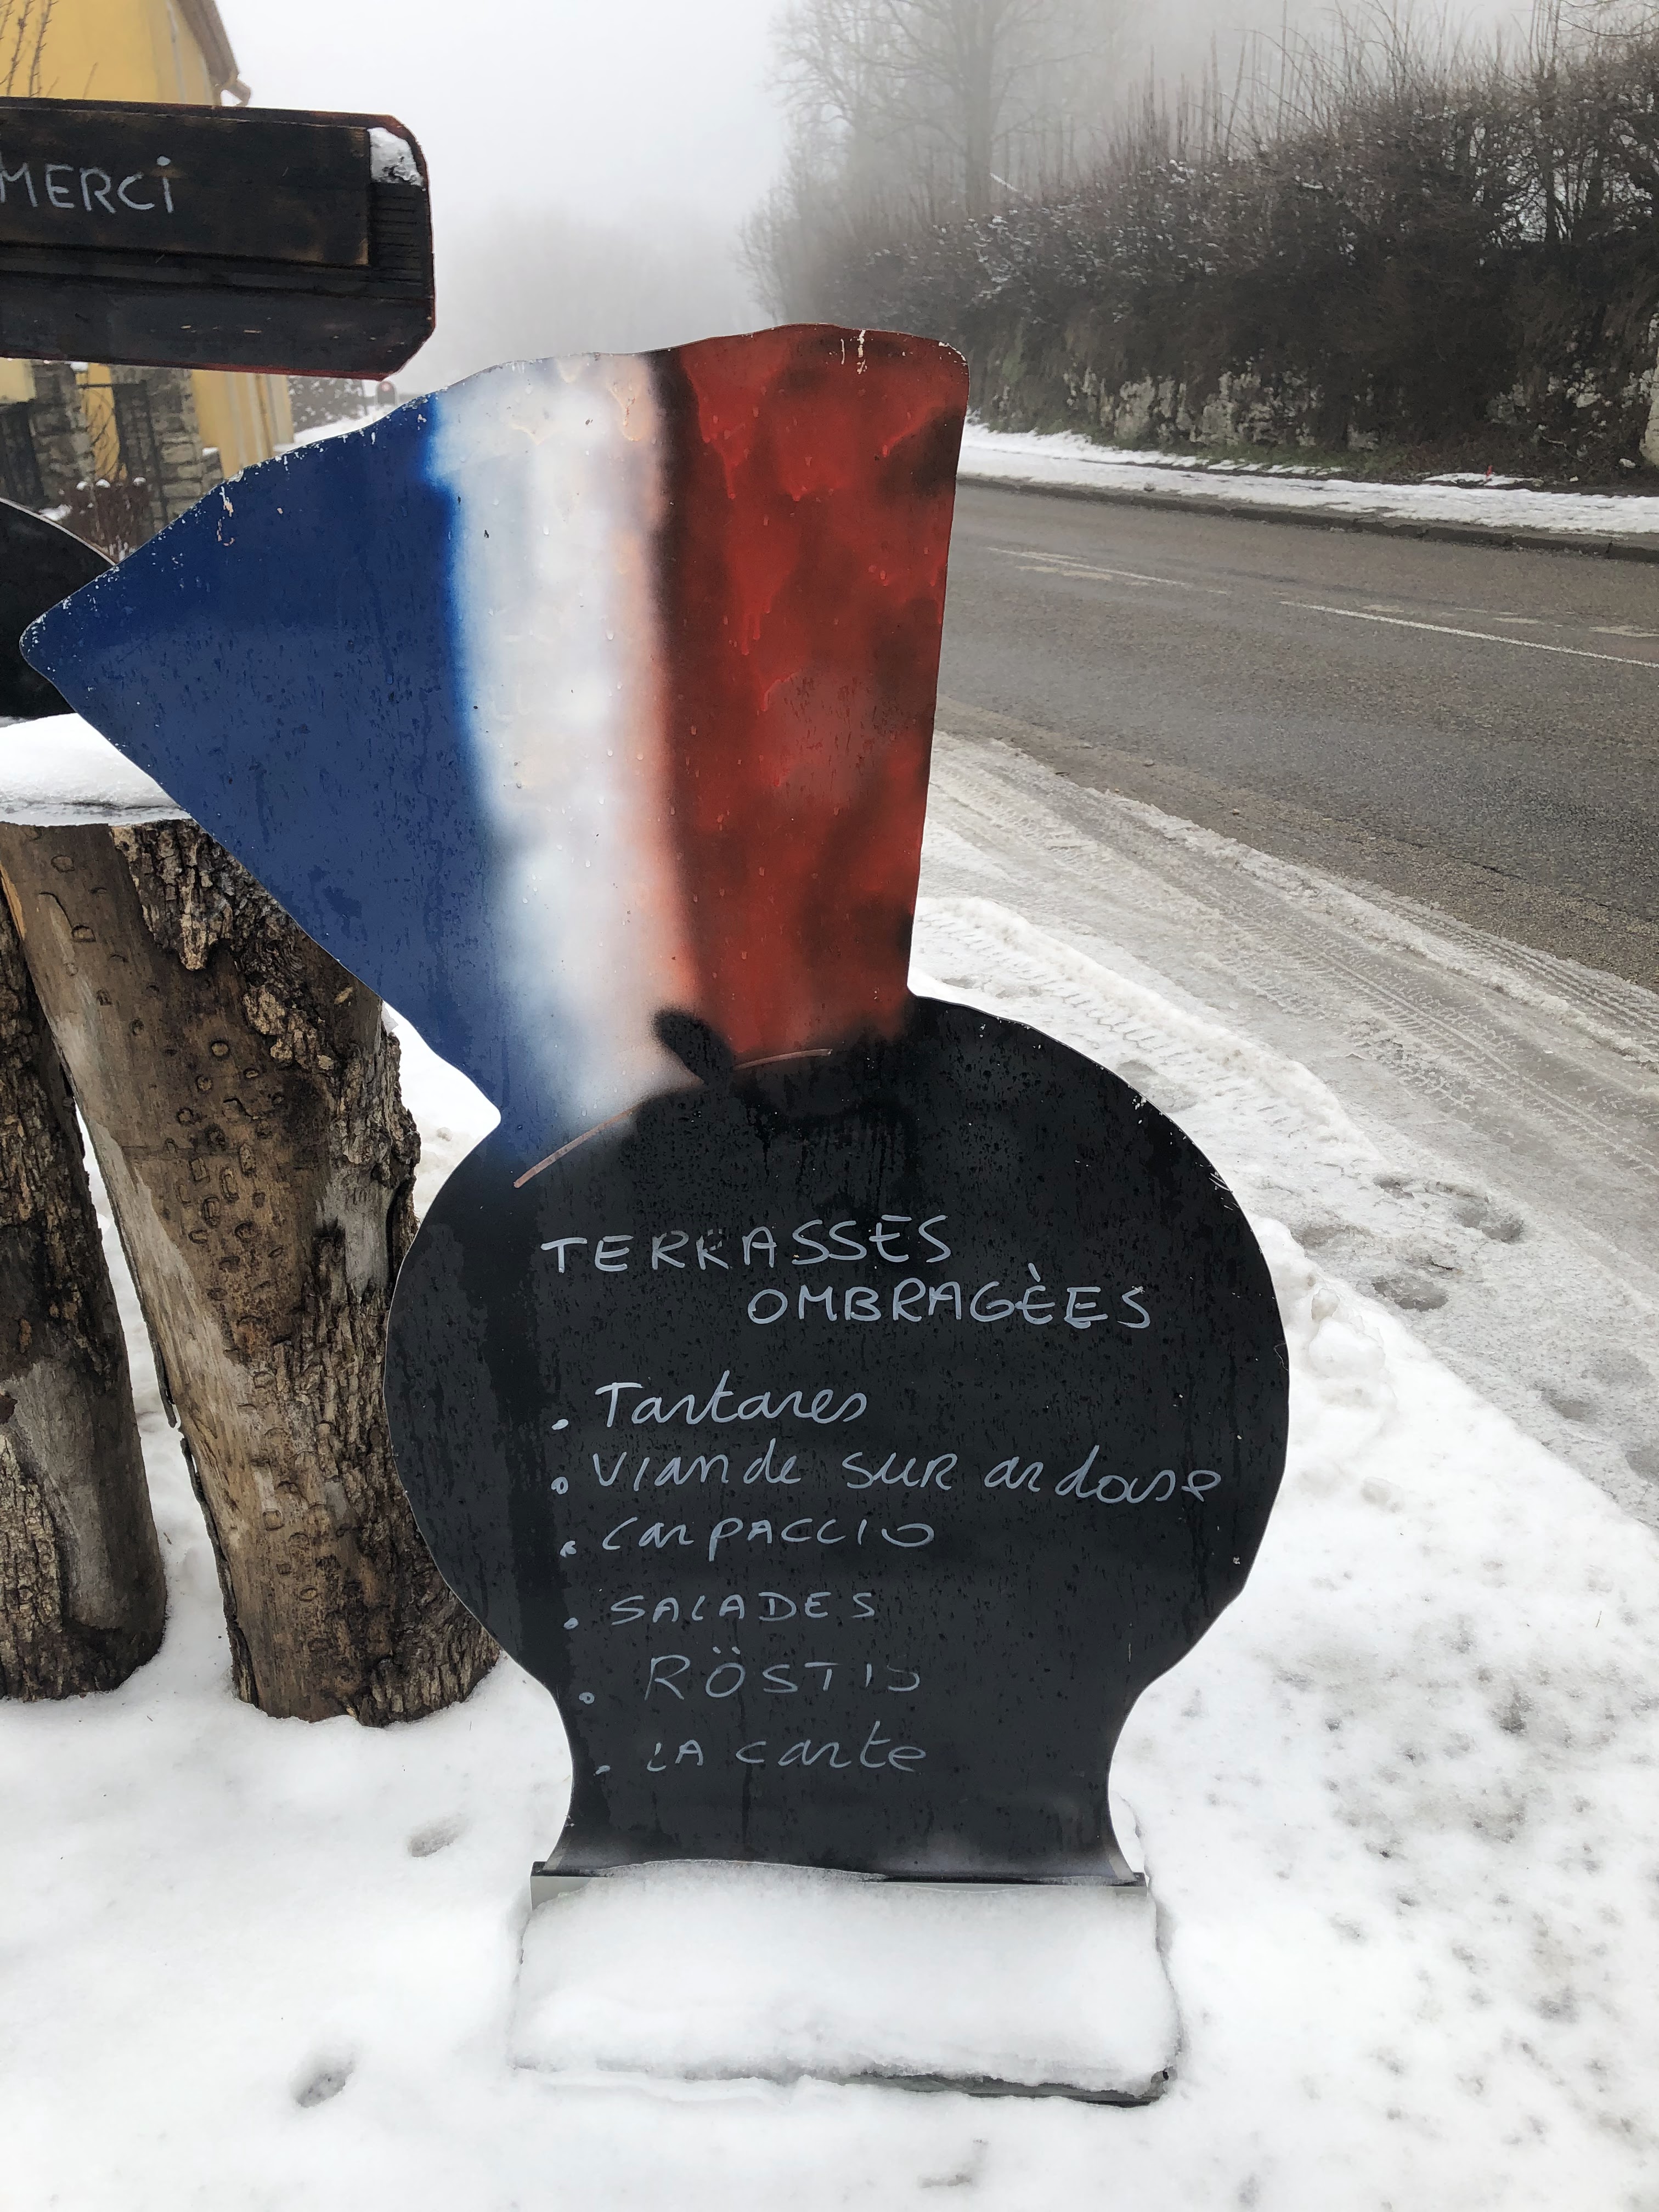 MERCi
TERRASSES
OMBRAGÈES
. Tartares
. Viande SUR ardoise
. CarPACCIO
. SALADES
. RÖSTIS
. LA carte